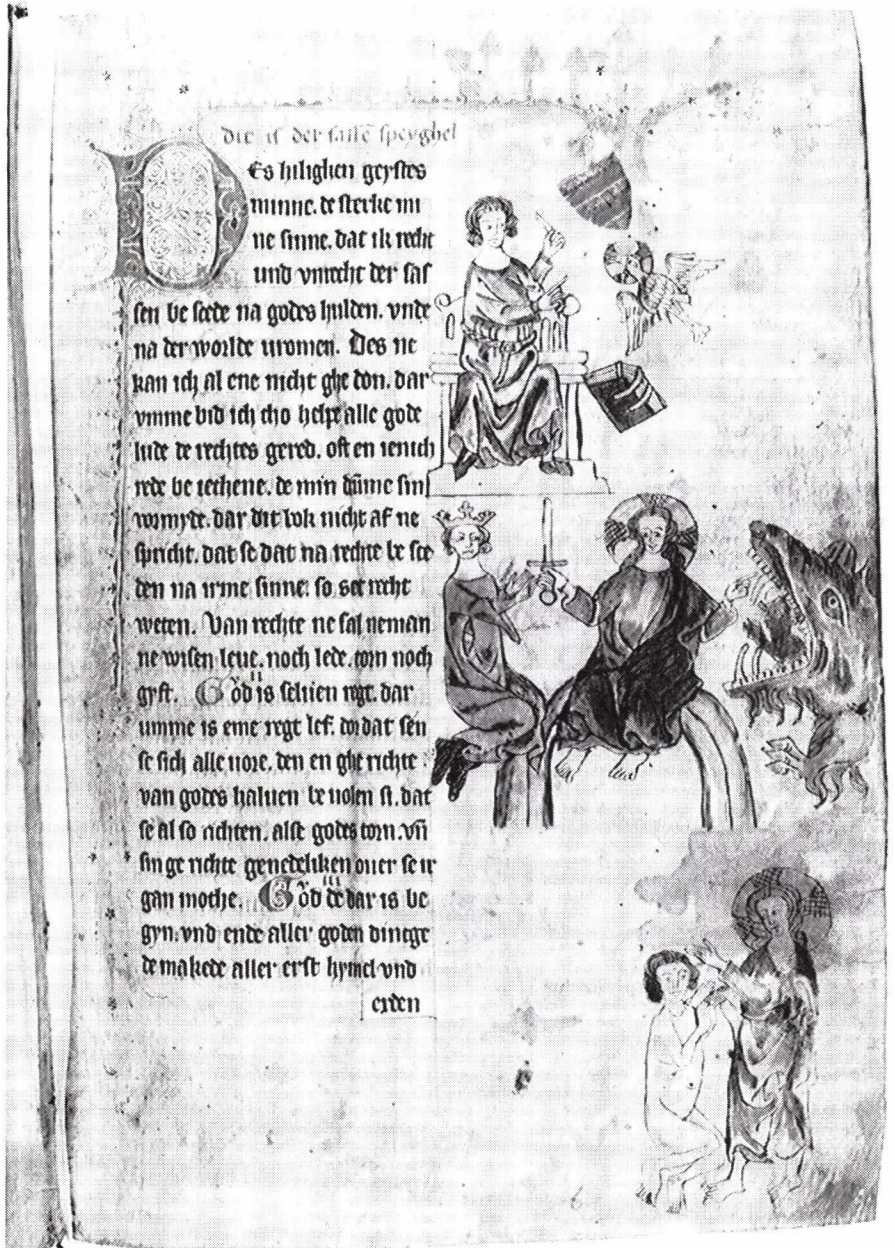 dit is der sasse speyghel
Des hilighen geystes
minne. de sterke mi
ne sinne. dat ik recht
und vnrecht der sas
sen be scede na godes hulden. vnde
na der worlde uromen. Des ne
kan ich al ene nicht ghe don. dar
vmme bid ich tho helpe alle gode
lude de rechtes gered. oft en ienich
rede be iechene. de min dume sin
vormyde. dar dit bok nicht af ne
spricht. dat se dat na rechte be sce
den na irme sinne. so set recht
weten. Van rechte ne sal neman
ne wisen leue. noch lede. torn noch
gyft. God is seluen regt. dar
umme is eme regt lef. dordat sen
se sich alle uore. den en ghe richte
van godes haluen be uolen si. dat
se al so richten. alse godes torn. vn
sin ge richte genedeliken ouer se ir
gan moche. God de dar is be
gyn. vnd ende aller goden dinege
de makede aller erst hymel vnd
erden